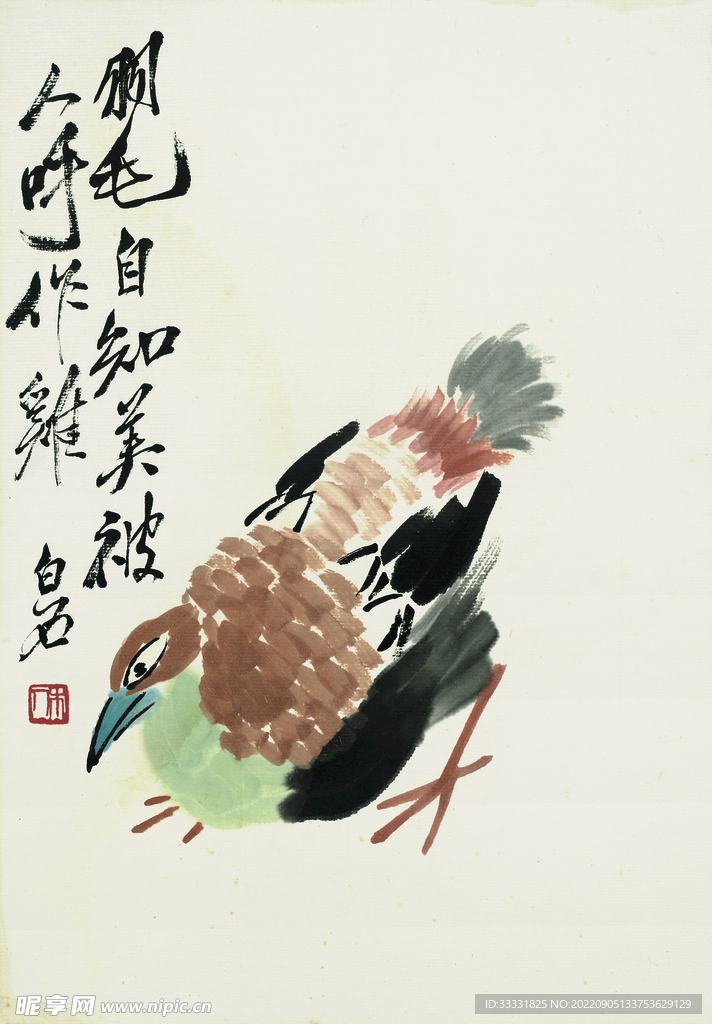 毛自知美被
人呼作雞
白石
木人
昵享网 www.nipic.cn
ID:33331825 NO:20220905133753629129